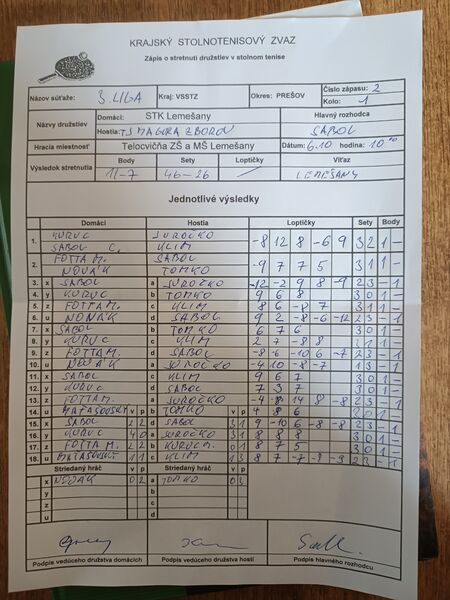 KRAJSKÝ STOLNOTENISOVÝ ZVÄZ
Zápis o stretnutí družstiev v stolnom tenise
Názov súťaže: 3. LIGA Kraj: VSSTZ Okres: PREŠOV Číslo zápasu: 2
Kolo: 1
Názvy družstiev Domáci: STK Lemešany Hlavný rozhodca
Hostia: TJ MAGURA ZBOROV SABOL
Hracia miestnosť Telocvičňa ZŠ a MŠ Lemešany Dátum: 6.10 hodina: 10⁰⁰
Výsledok stretnutia Body Sety Loptičky Víťaz
11-7 46-26 LEMEŠANY
Jednotlivé výsledky
Domáci Hostia Loptičky Sety Body
1. KURUC SUROČKO -8 12 8 -6 9 3 2 1 -
SABOL C. KLIM
2. FOTTA M. SABOL -9 7 7 5 3 1 1 -
NOVÁK TOMKO
3. x SABOL a SUROČKO -12 -2 9 8 -9 2 3 - 1
4. y KURUC b TOMKO 9 6 8 3 0 1 -
5. z FOTTA M. c KLIM 8 6 -8 7 3 1 1 -
6. u NOVÁK d SABOL 9 2 -8 -6 -12 2 3 - 1
7. x SABOL b TOMKO 6 7 6 3 0 1 -
8. y KURUC c KLIM 2 7 -8 8 3 1 1 -
9. z FOTTA M. d SABOL -8 -6 -10 6 -7 2 3 - 1
10. u NOVÁK a SUROČKO -4 -10 -8 -7 1 3 - 1
11. x SABOL c KLIM 9 6 7 3 0 1 -
12. y KURUC d SABOL 7 3 7 3 0 1 -
13. z FOTTA M. a SUROČKO -4 -8 14 8 -8 2 3 - 1
14. u MATASOVSKÝ v p b TOMKO v p 4 8 6 3 0 1 -
15. x SABOL 2 2 d SABOL 3 1 9 -10 6 -8 -8 2 3 - 1
16. y KURUC 4 0 a SUROČKO 3 1 8 8 8 3 0 1 -
17. z FOTTA M. 2 2 b 0 1 8 7 5 3 0 1 -
18. u MATASOVSKÝ 1 1 c KLIM 1 3 8 7 -7 -9 -9 2 3 - 1
Striedaný hráč v p Striedaný hráč v p
x NOVÁK 0 2 a TOMKO 0 3
y b
z c
u d
Podpis vedúceho družstva domácich Podpis vedúceho družstva hostí Podpis hlavného rozhodcu